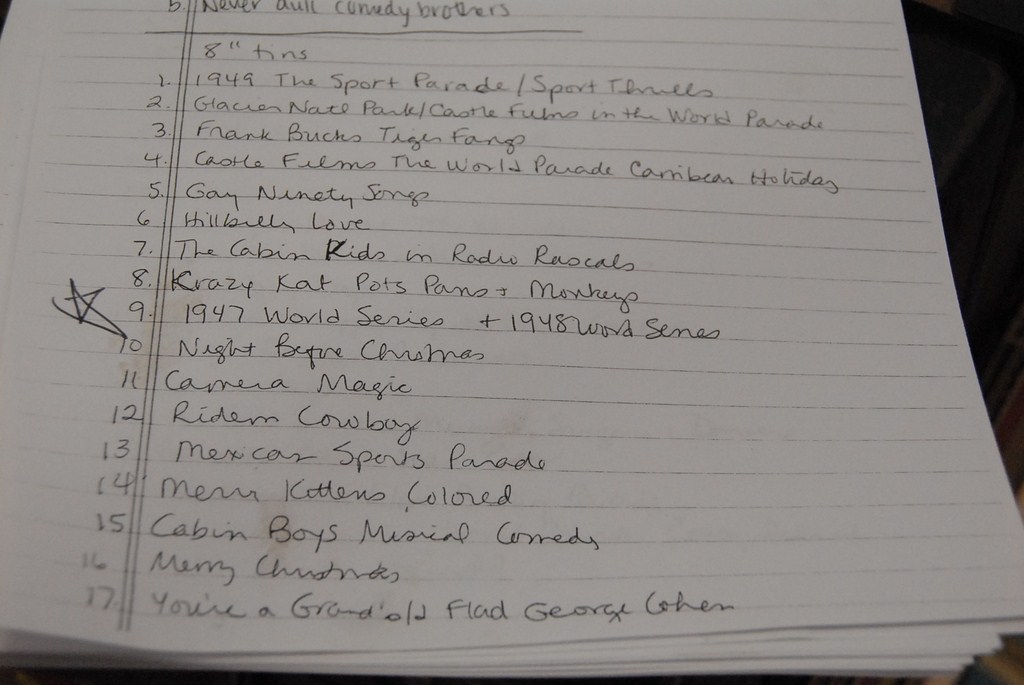 b. Never dull comedy brothers
8" tins
1. 1949 The Sport Parade / Sport Thrills
2. Glacier Natl Park / Castle Films in the World Parade
3. Frank Bucks Tiger Fangs
4. Castle Films The World Parade Carribean Holiday
5. Gay Ninety Songs
6 Hillbilly Love
7. The Cabin Kids in Radio Rascals
8. Krazy Kat Pots Pans + Monkeys
9. 1947 World Series + 1948 World Series
10 Night Before Christmas
11 Camera Magic
12 Ridem Cowboy
13 Mexican Sports Parade
14 Merry Kittens Colored
15 Cabin Boys Musical Comedy
16 Merry Christmas
17. You're a Grand old Flad George Cohen